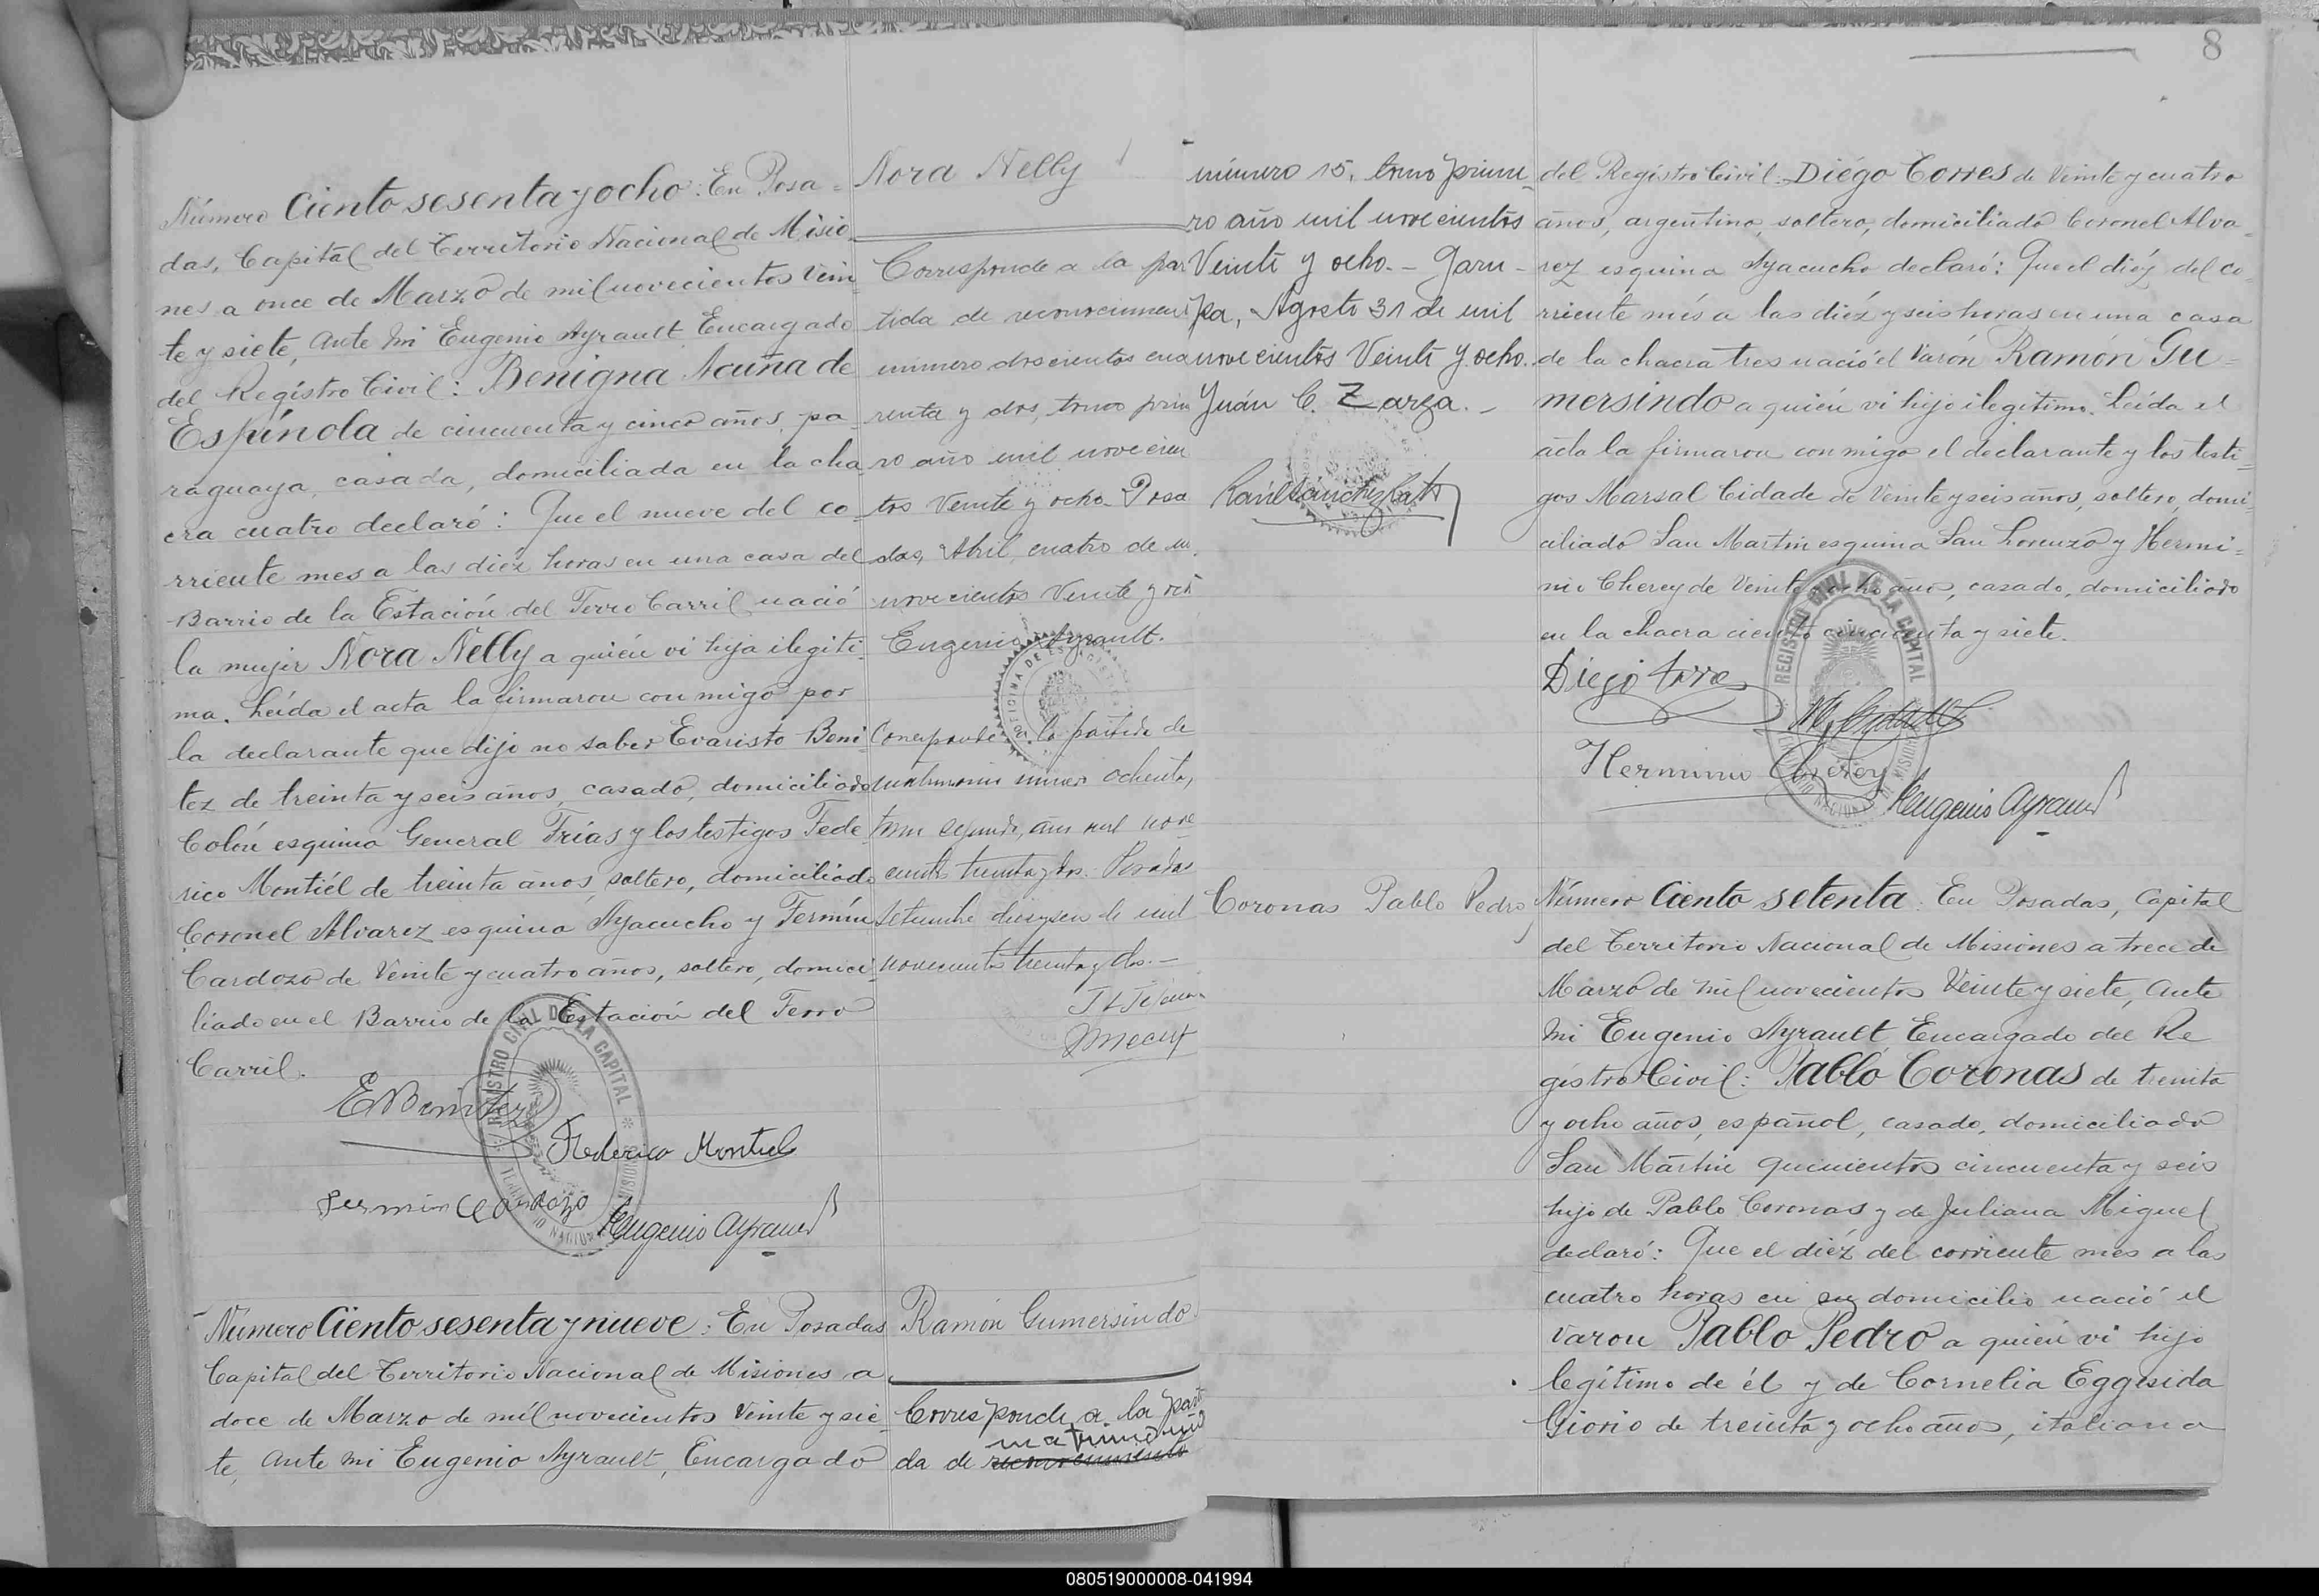 Número Ciento sesenta y ocho: En Posa=
das, Capital del Territorio Nacional de Misio
nes a once de Marzo de mil novecientos vein
te y siete, ante mi Eugenio Ayrault Encargado
del Registro Civil: Benigna Acuña de
Espínola de cincuenta y cinco años, pa
raguaya, casada, domiciliada en la cha
cra cuatro declaró: Que el nueve del co
rriente mes a las diéz horas en una casa del
Barrio de la Estación del Ferro Carril nació
la mujer Nora Nelly a quién vi hija ilegiti
ma. Leída el acta la firmaron conmigo por
la declarante que dijo no saber Evaristo Beni
tez de treinta y seis años, casado, domiciliado
Colón esquina General Frías y los testigos Fede
rico Montiél de treinta años, soltero, domiciliado
Coronel Alvarez esquina Ayacucho y Fermín
Cardozo de Veinte y cuatro años, soltero, domici
liado en el Barrio de la Estación del Ferro
Carril.
E Benitez
Federico Montiel
Fermin Cardozo
Eugenio Ayrault
REGISTRO CIVIL DE LA CAPITAL
Número Ciento sesenta y nueve: En Posadas
Capital del Territorio Nacional de Misiones a
doce de Marzo de mil novecientos Veinte y sie
te, ante mi Eugenio Ayrault, Encargado
Nora Nelly
Corresponde a la par
tida de reconocimien
número doscientos cua
renta y dos, tomo prim
ro año mil novecien
tos Veinte y ocho. Posa
das, Abril cuatro de m.
novecientos Veinte y och
Eugenio Ayrault.
OFICINA DE ESTADISTICA
Corresponde a la partida de
matrimonio número ochenta,
tomo segundo, año mil nove
cientos treinta y dos. Posadas
Setiembre dieciseis de mil
novecientos treinta y dos.—
Ramón Gumersindo
Corresponde a la parti
matrimonio
da de reconocimiento
8
número 15, tomo prime
ro año mil novecientos
Veinte y ocho. - Garu-
pa, Agosto 31 de mil
novecientos Veinte y ocho.
Juán C. Zarza. -
del Registro Civil: Diégo Torres de Veinte y cuatro
años, argentino, soltero, domiciliado Coronel Alva=
rez esquina Ayacucho declaró: Que el diéz del co
rriente més a las diéz y seis horas en una casa
de la chacra tres nació el Varón Ramón Gu=
mersindo a quién vi hijo ilegítimo. Leída el
acta la firmaron conmigo el declarante y los testi=
gos Marsal Cidade de Veinte y seis años, soltero, domi=
ciliado San Martín esquina San Lorenzo y Hermi=
nio Cherey de Veinte y ocho años, casado, domiciliado
en la chacra ciento cincuenta y siete.
Diego torre
Herminio Cherey
Eugenio Ayrault
REGISTRO CIVIL DE LA CAPITAL
Coronas Pablo Pedro
Número Ciento setenta: En Posadas, Capital
del Territorio Nacional de Misiones a trece de
Marzo de mil novecientos Veinte y siete, ante
mi Eugenio Ayrault Encargado del Re
gistro Civil: Pabló Coronas de treinta
y ocho años, español, casado, domiciliado
San Martín quinientos cincuenta y seis
hijo de Pablo Coronas y de Juliana Miguel
declaró: Que el diéz del corriente mes a las
cuatro horas en su domicilio nació el
varon Pablo Pedro a quién vi hijo
legítimo de él y de Cornelia Eggesida
Giorio de treinta y ocho años, italiana
080519000008-041994